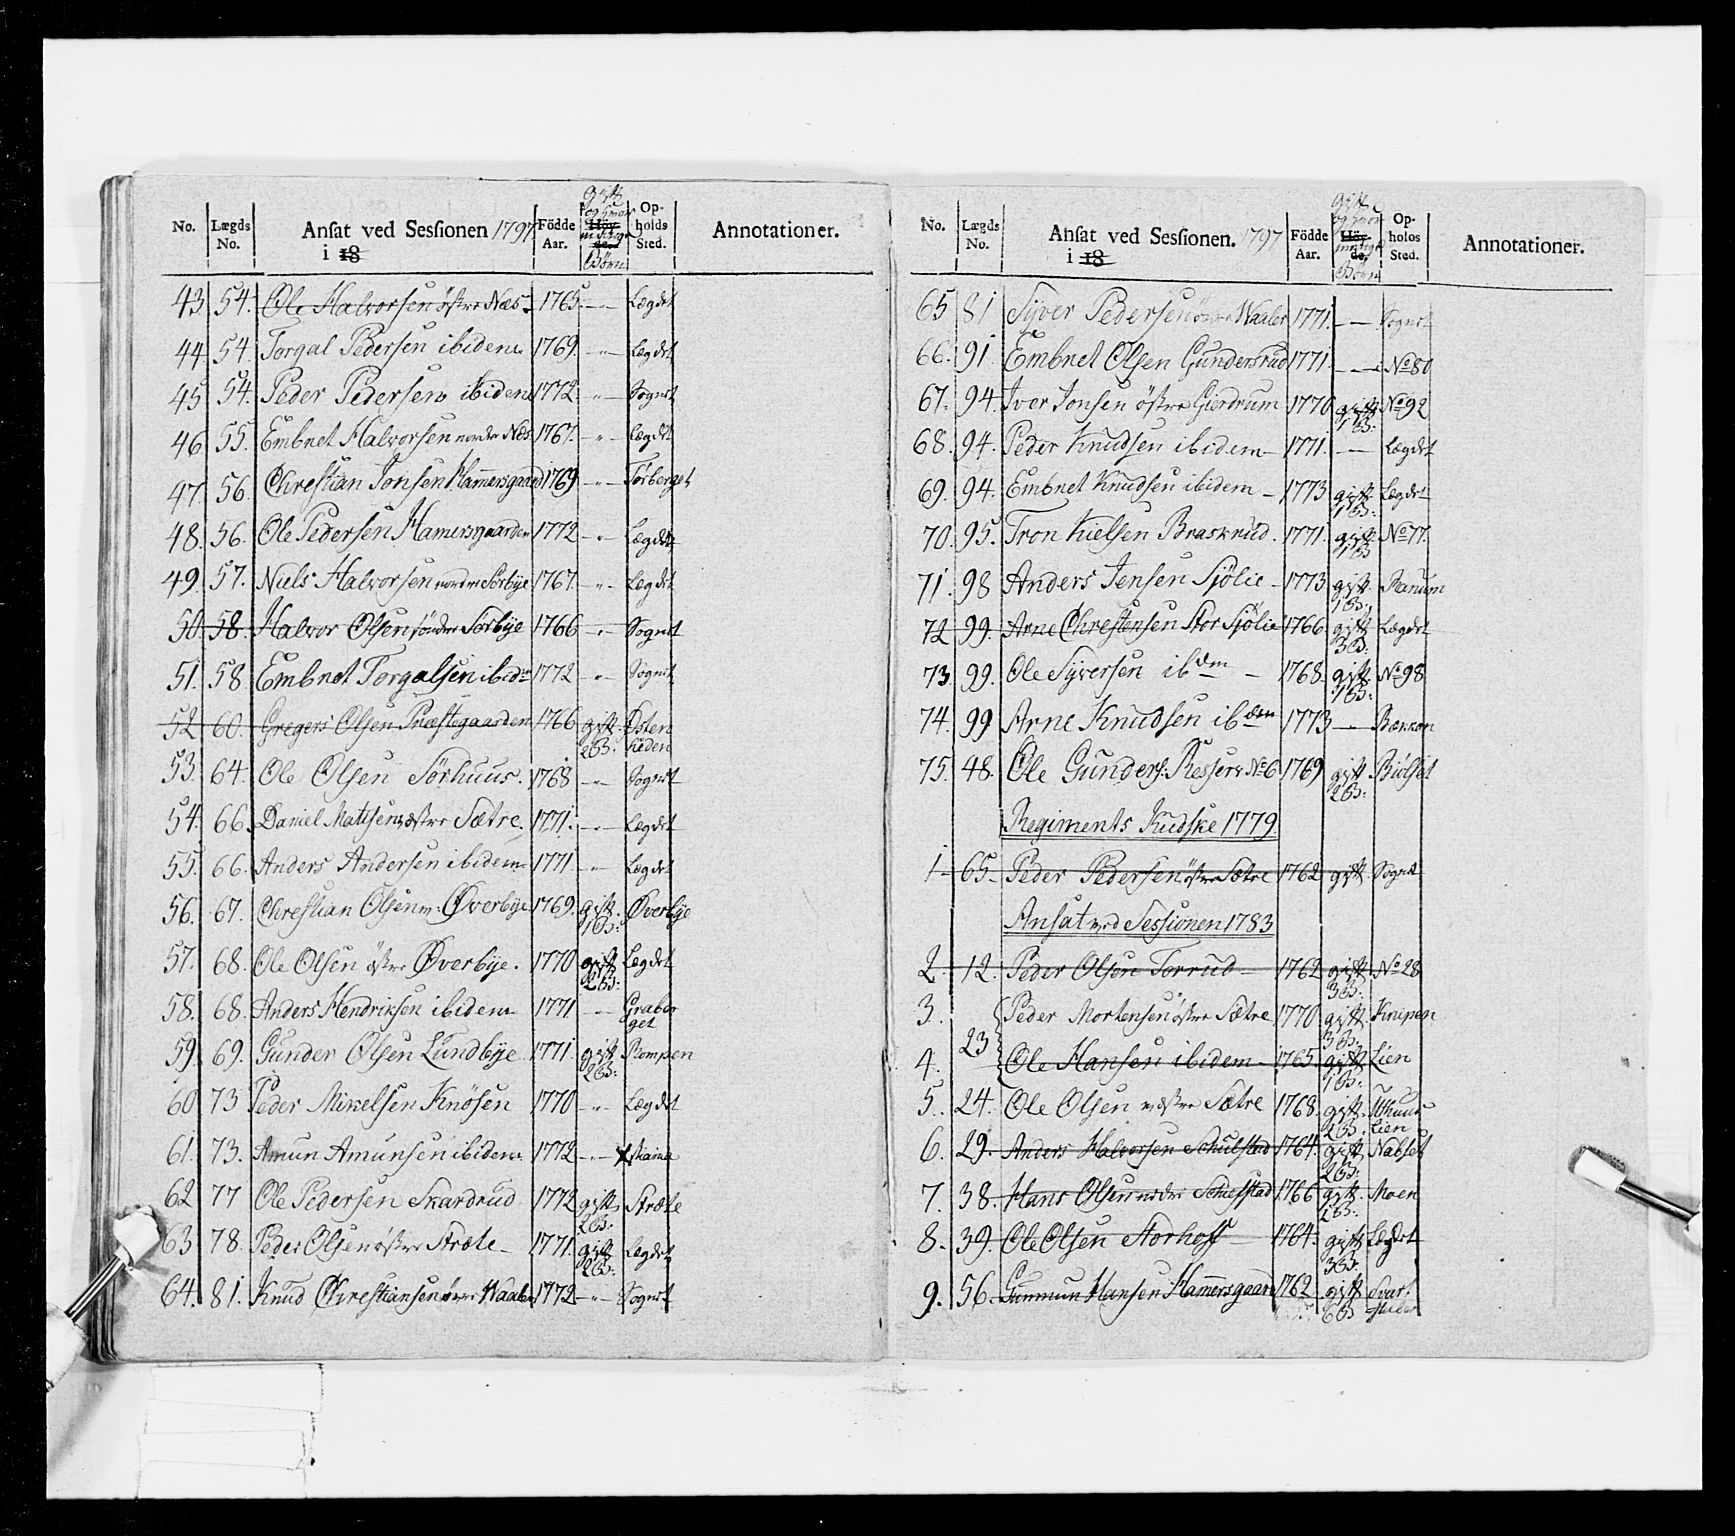 No. Lægds No. Ansat ved Sessionen 1797 i 18 Födde Aar. gift og hvor mange Börn Op-holds Sted. Annotationer.
43. 54. Ole Halvorsen östre Næs 1765. -"- Lægdet
44 54. Torgal Pedersen ibidem 1769. -"- Lægdet
45 54. Peder Pedersen ibidem 1772 -"- Sognet
46 55. Embret Halvorsen nordre Næs 1767. -"- Lægdet
47 56. Christian Jonsen Hammersgaard 1769 -"- Törberget
48. 56. Ole Pedersen Hamersgaarden 1772 -"- Lægdet
49. 57. Niels Halvorsen nordre Sörbye 1767. -"- Lægdet
50. 58. Halvor Olsen söndre Sörbye 1766 -"- Sognet
51. 58 Embret Torgalsen ibidm 1772 -"- Sognet
52 60. Gregers Olsen Præstegaarden 1766 gift 2B: Östen heden
53. 64. Ole Olsen Sörhuus. 1768 -"- Sognet
54. 66. Daniel Matisen væstre Sætre. 1771. -"- Lægdet
55. 66. Anders Andersen ibidem 1771 -"- Lægdet
56. 67. Christian Olsen v: Øverbye 1769. gift 1B: Øverbye
57. 68. Ole Olsen östre Øverbye. 1770 gift 2B: Lægdet
58. 68. Anders Hendriksen ibidem 1771 -"- Graber get
59. 69. Gunder Olsen Lundbye 1771. gift 2B: Rompen
60 73 Peder Mikelsen Knösen 1770 -"- Lægdet
61. 73. Amun Amunsen ibidem 1772 -"- X
62 77 Ole Pedersen Skardrud 1772 gift 2B. Stræte
63 78. Peder Olsen östre Stræte 1771. gift 2B: Lægdet
64. 81. Knud Christiansen övre Waaler 1772 -"- Sognet
No. Lægds No. Ansat ved Sessionen. 1797 i 18 Födde Aar. gift og hvor mange Börn Op-holds Sted. Annotationer.
65 81 Syver Pedersen övre Waaler 1771. -- Sognet
66. 91. Embret Olsen Gundersrud 1771. -- No 80
67. 94. Iver Jonsen östre Gierdrum 1770 gift 1B: No 92
68. 94. Peder Knudsen ibidem 1771. -- Lægdet
69. 94. Embret Knudsen ibidem 1773 gift 1B: Lægdet
70. 95. Tron Kielsen Braskrud. 1771. gift 1B No 77.
71. 98 Anders Jensen Sjölie 1773 gift 1B. Stanum
72 99. Arne Christensen Stor Sjölie 1766 gift 3B: Lægdet
73. 99. Ole Syversen ibdm 1768. gift 1B: No 98
74. 99 Arne Knudsen ibdem 1773 --
75. 48. Ole Gunders: Messers No 6 1769 gift 2B: Biölset
Regiments Kudske 1779.
1 65 Peder Pedersen östre Sætre 1762 gift Sognet
Ansat ved Sessionen 1783
2. 12. Peder Olsen Torrud 1762 gift 3B: No 28
3. 23 Peder Mortensen östre Sætre 1770 gift 3B. Knipen
4. Ole Hansen ibidem 1765 gift 1B: Lien
5. 24. Ole Olsen væstre Sætre 1768. gift 2B. Uhuus Lien
6. 29. Anders Halvorsen Schulstad 1764. gift 2B: Nabset
7. 38. Hans Olsen nedre Schulstad 1766 gift 2B: Moen
8. 39. Ole Olsen Storhoff 1764. gift 3B: Lægdet
9. 56. Gunmun Hansen Hamersgaard 1762 gift 6B Svart